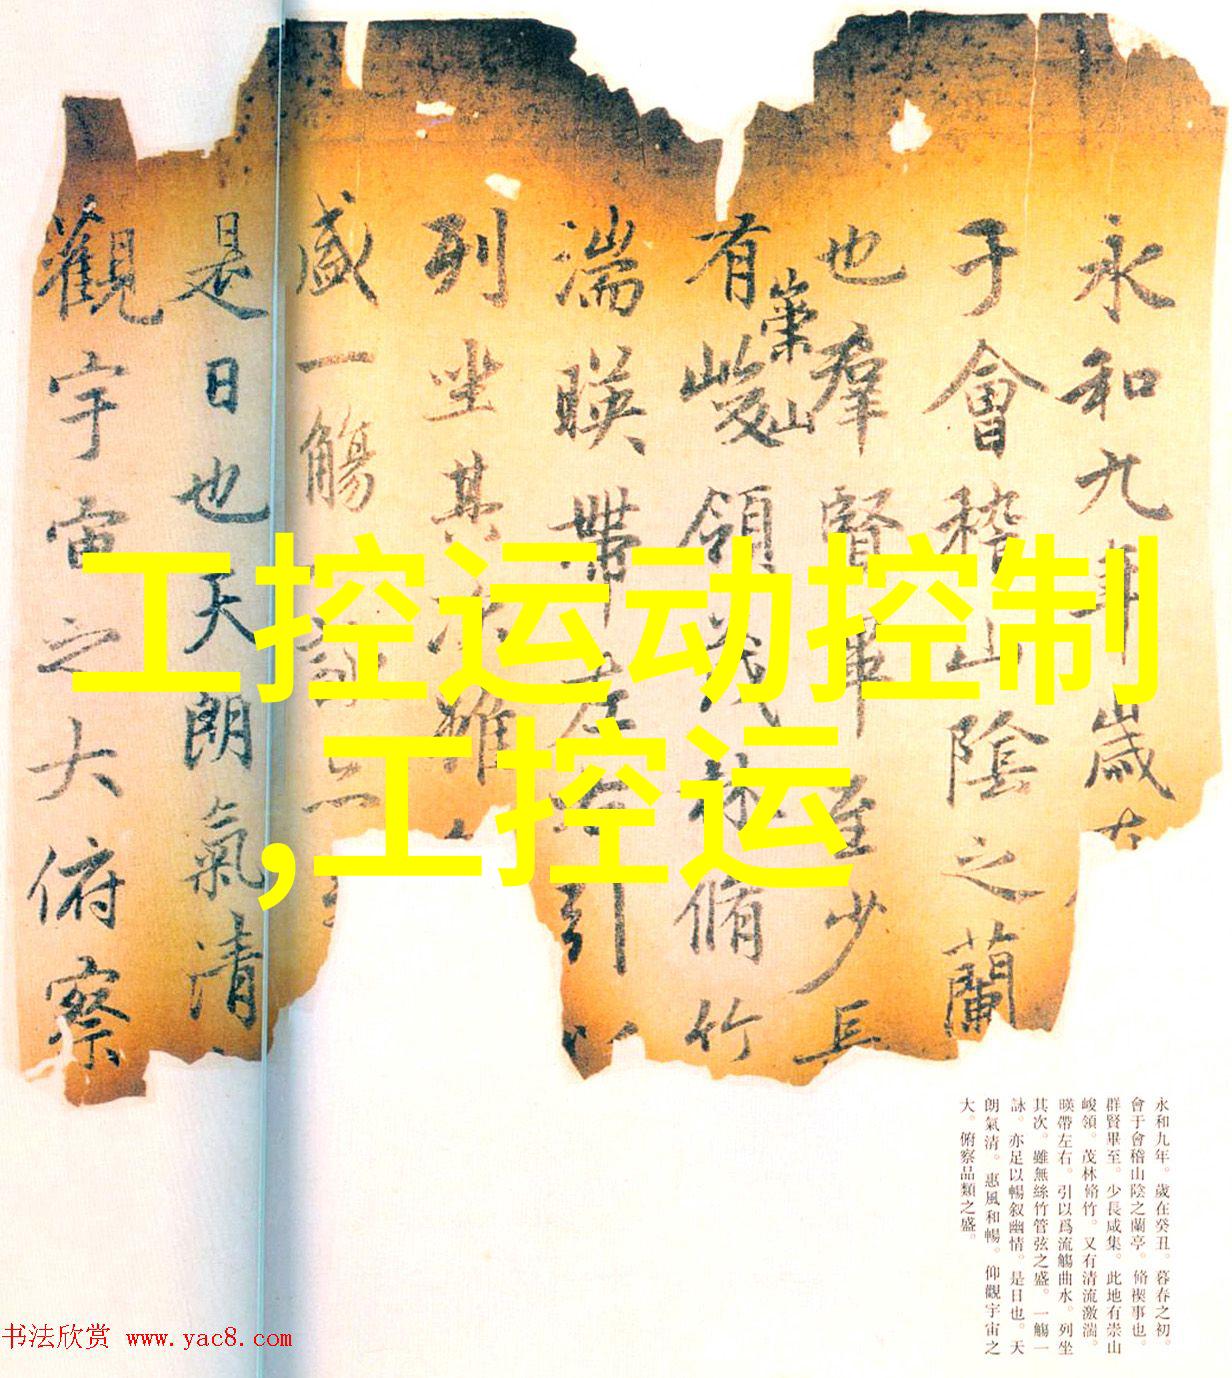 永和九年歲在
于會稽山陰之蘭
也羣賢畢至少長
有崇山峻領茂林脩竹
湍暎帶左右引以
列坐其次雖
盛一觴一詠亦
是日也天朗氣清
觀宇宙之大俯察
工控运动控制
,工控运
永和九年。歲在癸丑。暮春之初。
會于會稽山陰之蘭亭。脩禊事也。
群賢畢至。少長咸集。此地有崇山
峻領。茂林脩竹。又有清流激湍。
暎帶左右。引以爲流觴曲水。列坐
其次。雖無絲竹管弦之盛。一觴一
詠。亦足以暢叙幽情。是日也。天
朗氣清。惠風和暢。仰觀宇宙之
大。俯察品類之盛。
书法欣赏 www.yac8.com